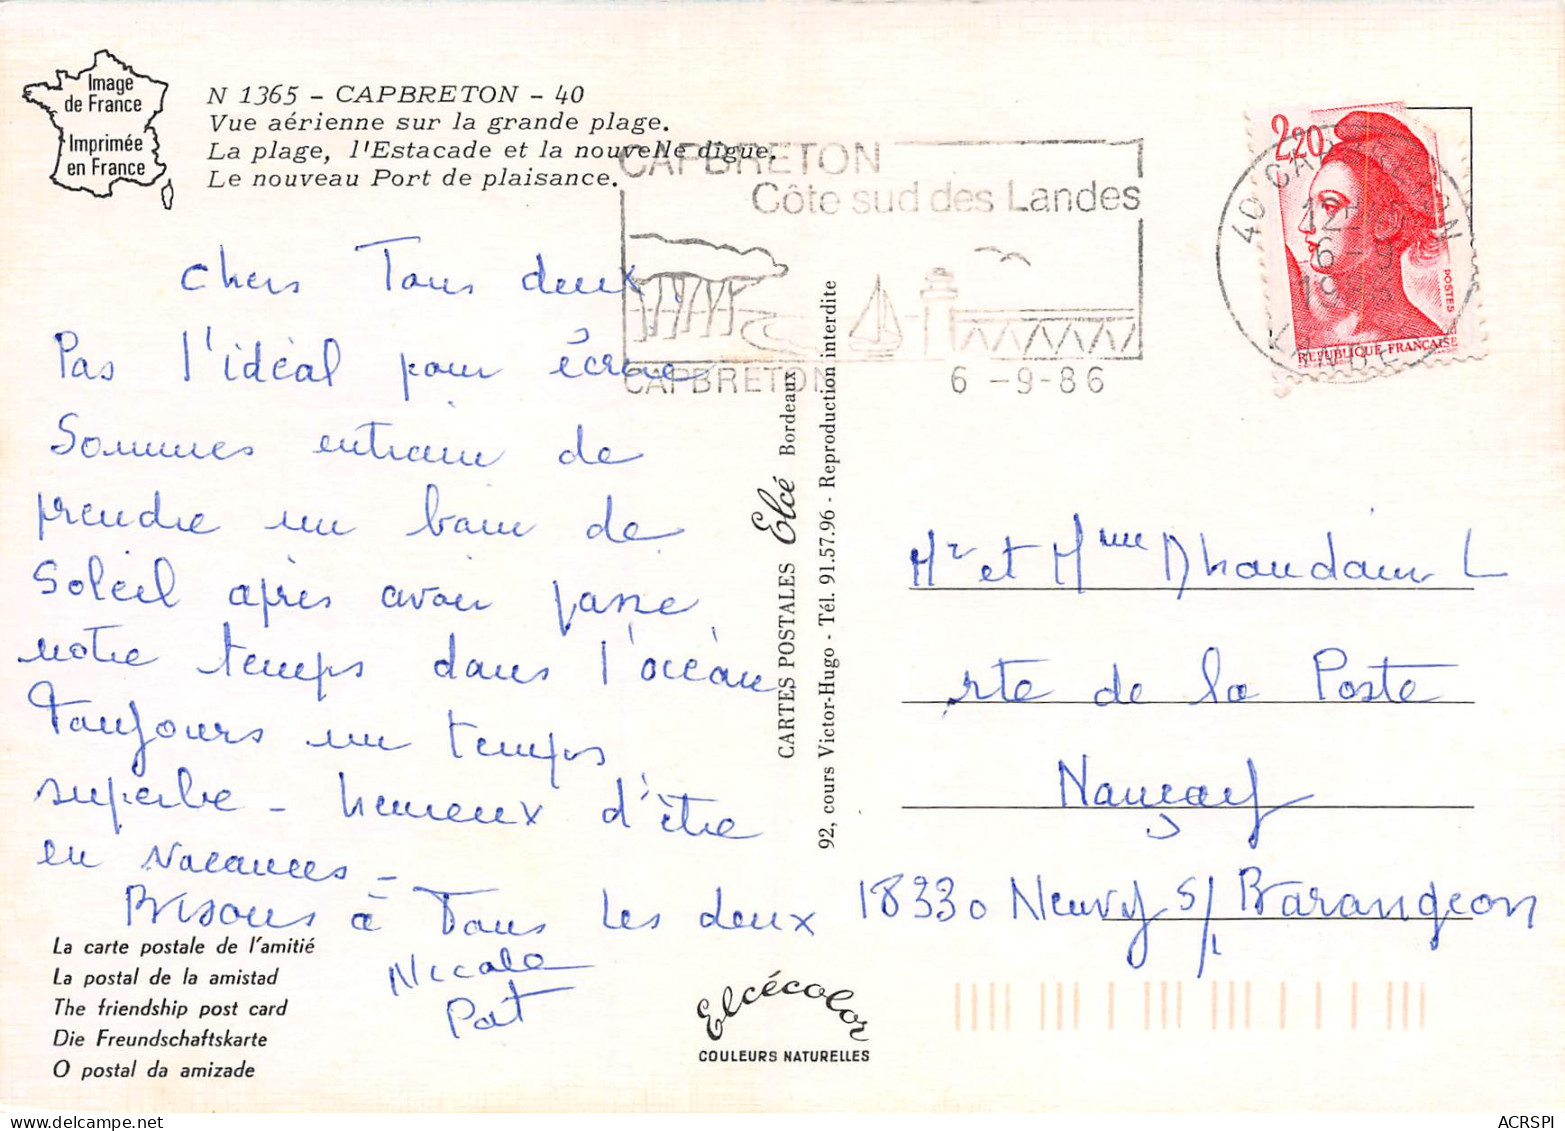 Image
de France
Imprimée
en France
N 1365 - CAPBRETON - 40
Vue aérienne sur la grande plage.
La plage, l'Estacade et la nouvelle digue.
Le nouveau Port de plaisance.
CAPBRETON
Côte sud des Landes
CAPBRETON 6 -9-86
2,20
POSTES
REPUBLIQUE FRANÇAISE
40 CAPBRETON
6-9
chers Tous deux,
Pas l'idéal pour écrire
Sommes entrain de
prendre un bain de
Soleil après avoir passe
notre temps dans l'océan
Toujours un temps
superbe - heureux d'être
en vacances -
Bisous à Tous les deux
Nicole
Pat
La carte postale de l'amitié
La postal de la amistad
The friendship post card
Die Freundschaftskarte
O postal da amizade
CARTES POSTALES Elcé Bordeaux
92, cours Victor-Hugo - Tél. 91.57.96 - Reproduction interdite
Elcécolor
COULEURS NATURELLES
Mr et Mme Dhaudain L
rte de la Poste
Nançay
18330 Neuvy s/ Barangeon
ACRSPI